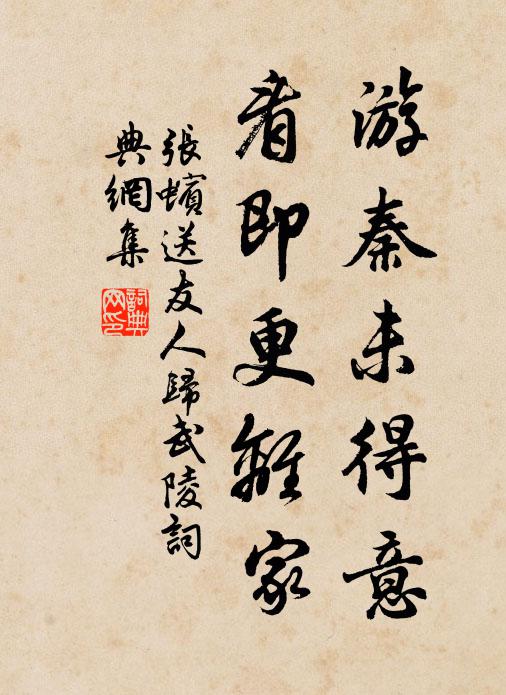 游秦未得意
看即更離家
張蠙送友人歸武陵詞
典網集
詞典
网印